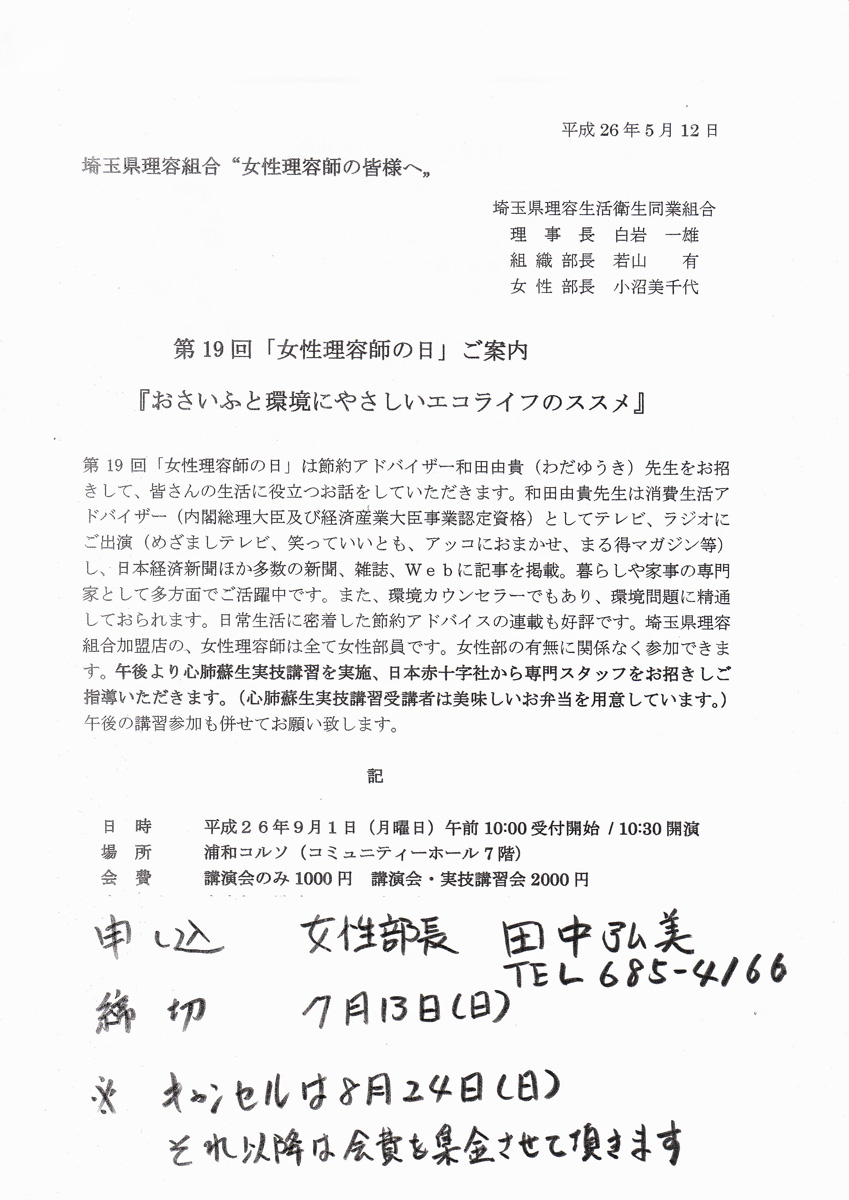 平成 26 年 5 月 12 日
埼玉県理容組合“女性理容師の皆様へ„
埼玉県理容生活衛生同業組合
理 事 長 白岩 一雄
組 織 部長 若山 有
女 性 部長 小沼美千代
第 19 回「女性理容師の日」ご案内
『おさいふと環境にやさしいエコライフのススメ』
第 19 回「女性理容師の日」は節約アドバイザー和田由貴（わだゆうき）先生をお招
きして、皆さんの生活に役立つお話をしていただきます。和田由貴先生は消費生活ア
ドバイザー（内閣総理大臣及び経済産業大臣事業認定資格）としてテレビ、ラジオに
ご出演（めざましテレビ、笑っていいとも、アッコにおまかせ、まる得マガジン等）
し、日本経済新聞ほか多数の新聞、雑誌、Ｗｅｂに記事を掲載。暮らしや家事の専門
家として多方面でご活躍中です。また、環境カウンセラーでもあり、環境問題に精通
しておられます。日常生活に密着した節約アドバイスの連載も好評です。埼玉県理容
組合加盟店の、女性理容師は全て女性部員です。女性部の有無に関係なく参加できま
す。午後より心肺蘇生実技講習を実施、日本赤十字社から専門スタッフをお招きしご
指導いただきます。（心肺蘇生実技講習受講者は美味しいお弁当を用意しています。）
午後の講習参加も併せてお願い致します。
記
日 時 平成２６年９月１日（月曜日）午前 10:00 受付開始 / 10:30 開演
場 所 浦和コルソ（コミュニティーホール 7 階）
会 費 講演会のみ 1000 円 講演会・実技講習会 2000 円
申し込 女性部長 田中弘美
TEL 685-4166
締切 7月13日(日)
※ キャンセルは8月24日(日)
それ以降は会費を集金させて頂きます